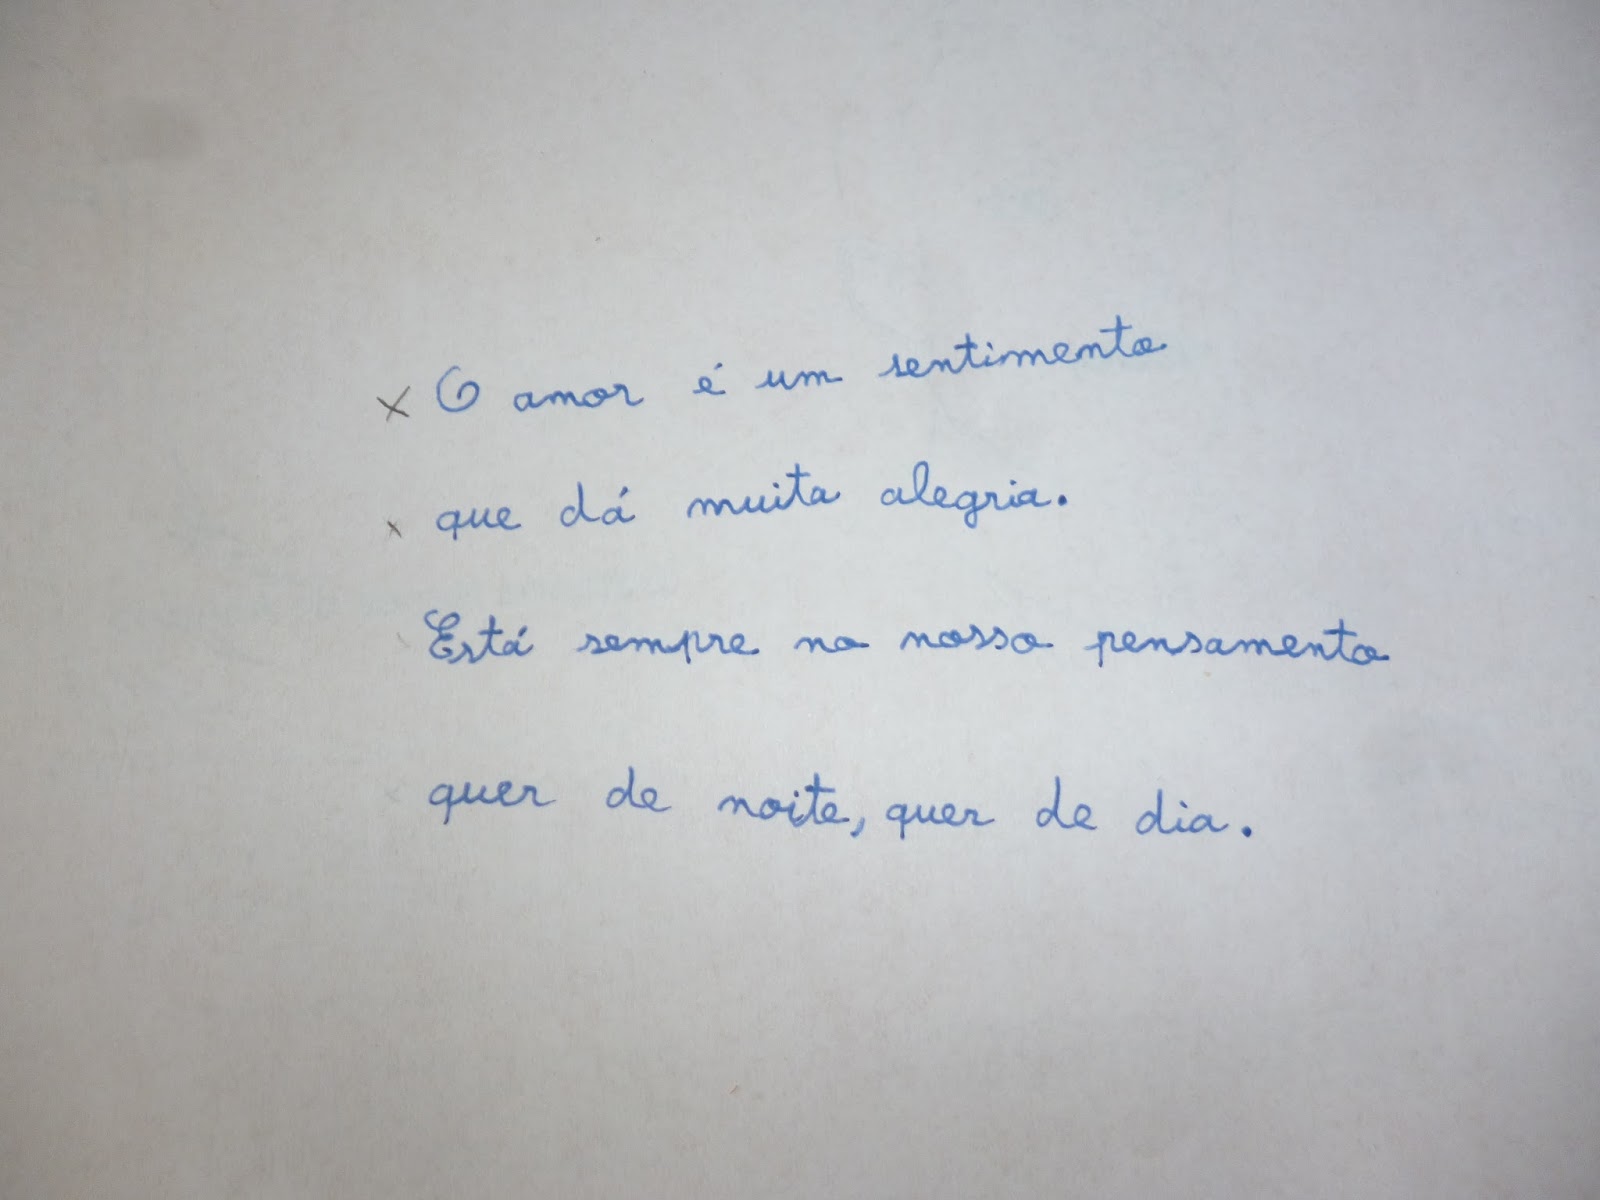 × O amor é um sentimento
× que dá muita alegria.
Está sempre no nosso pensamento
quer de noite, quer de dia.